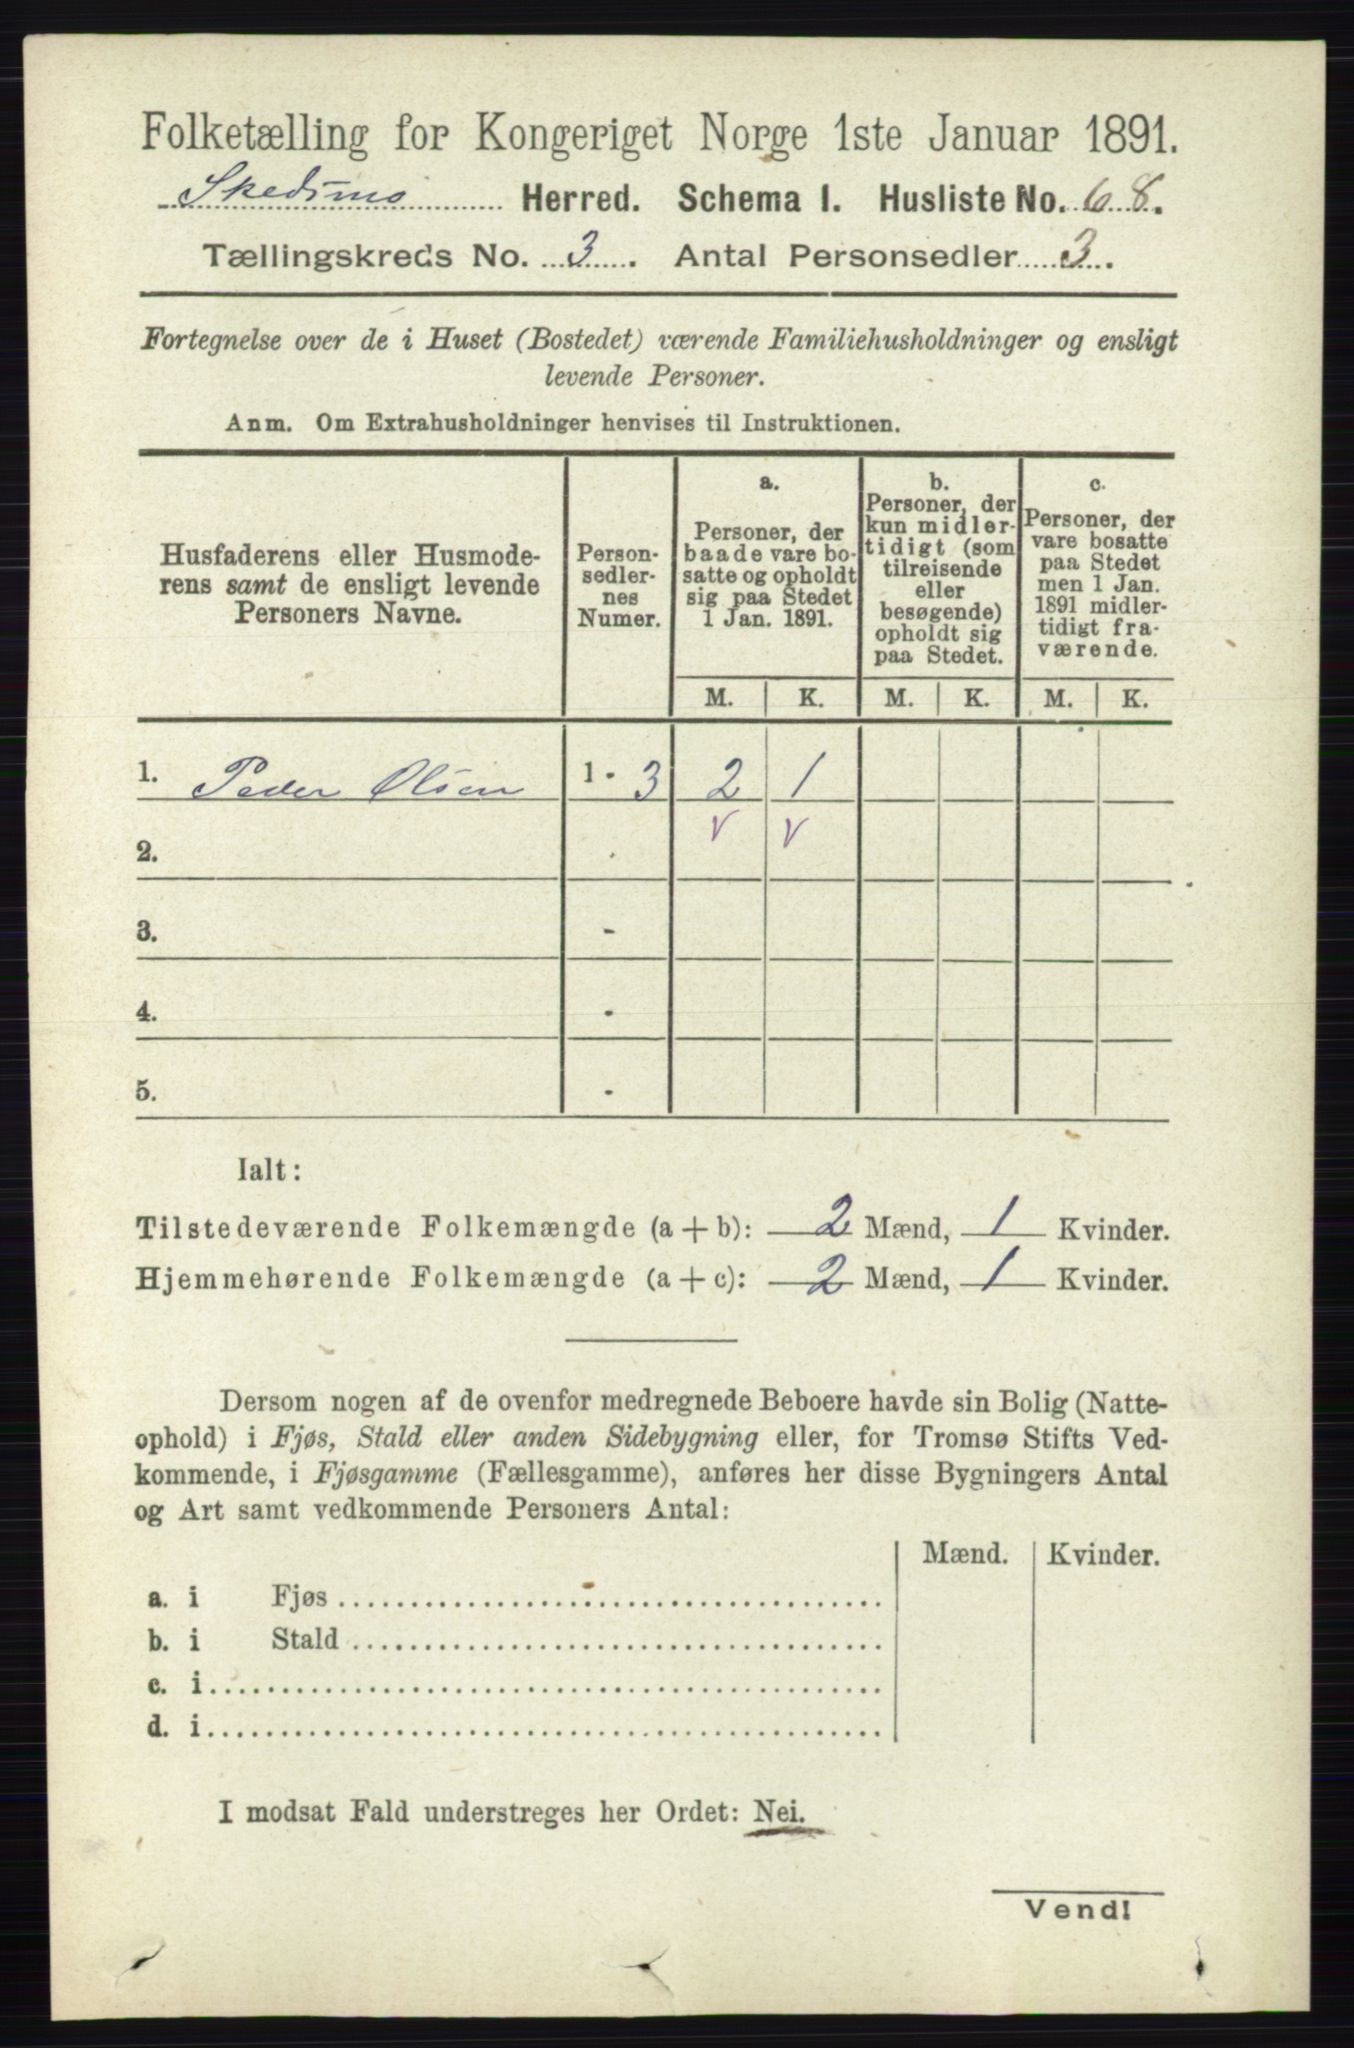 Folketælling for Kongeriget Norge 1ste Januar 1891.
Skedsmo Herred. Schema I. Husliste No. 68.
Tællingskreds No. 3. Antal Personsedler 3.
Fortegnelse over de i Huset (Bostedet) værende Familiehusholdninger og ensligt
levende Personer.
Anm. Om Extrahusholdninger henvises til Instruktionen.
Husfaderens eller Husmode-
rens samt de ensligt levende
Personers Navne.
Person-
sedler-
nes
Numer.
a.
Personer, der
baade vare bo-
satte og opholdt
sig paa Stedet
1 Jan. 1891.
b.
Personer, der
kun midler-
tidigt (som
tilreisende
eller
besøgende)
opholdt sig
paa Stedet.
c.
Personer, der
vare bosatte
paa Stedet
men 1 Jan.
1891 midler-
tidigt fra-
værende.
M. K. M. K. M. K.
1. Peder Olsen 1 - 3 2 1
v v
2. -
3. -
4. -
5. -
Ialt:
Tilstedeværende Folkemængde (a + b): 2 Mænd, 1 Kvinder.
Hjemmehørende Folkemængde (a + c): 2 Mænd, 1 Kvinder.
Dersom nogen af de ovenfor medregnede Beboere havde sin Bolig (Natte-
ophold) i Fjøs, Stald eller anden Sidebygning eller, for Tromsø Stifts Ved-
kommende, i Fjøsgamme (Fællesgamme), anføres her disse Bygningers Antal
og Art samt vedkommende Personers Antal:
Mænd. Kvinder.
a. i Fjøs
b. i Stald
c. i
d. i
I modsat Fald understreges her Ordet: Nei.
Vend!